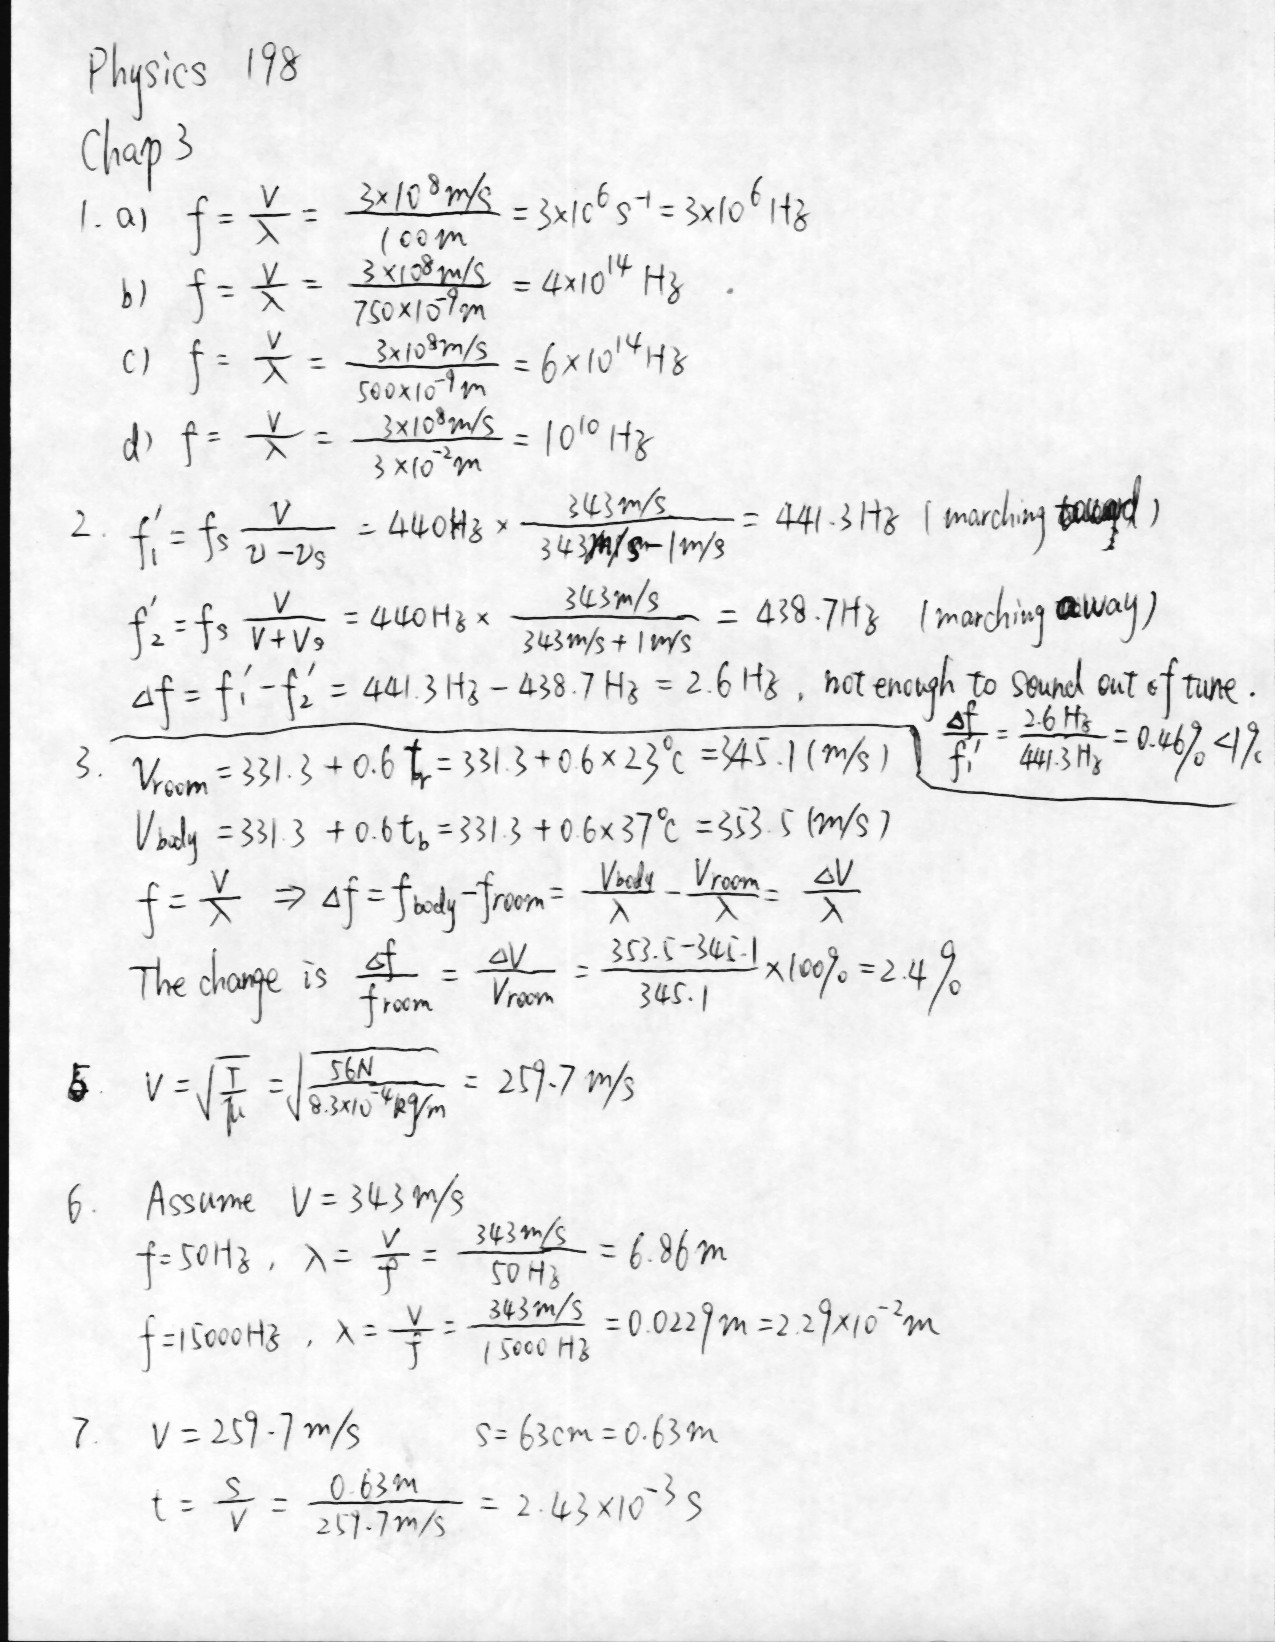 Physics 198
Chap 3
1. a) f = V/λ = 3×10⁸ m/s / 100 m = 3×10⁶ s⁻¹ = 3×10⁶ Hz
b) f = V/λ = 3×10⁸ m/s / 750×10⁻⁹ m = 4×10¹⁴ Hz
c) f = V/λ = 3×10⁸ m/s / 500×10⁻⁹ m = 6×10¹⁴ Hz
d) f = V/λ = 3×10⁸ m/s / 3×10⁻² m = 10¹⁰ Hz
2. f₁' = fs V/(v - vs) = 440 Hz × 343 m/s / (343 m/s - 1 m/s) = 441.3 Hz (marching toward)
f₂' = fs V/(V + Vs) = 440 Hz × 343 m/s / (343 m/s + 1 m/s) = 438.7 Hz (marching away)
Δf = f₁' - f₂' = 441.3 Hz - 438.7 Hz = 2.6 Hz, not enough to sound out of tune.
Δf/f₁' = 2.6 Hz / 441.3 Hz = 0.46% < 1%
3. Vroom = 331.3 + 0.6 tr = 331.3 + 0.6 × 23°C = 345.1 (m/s)
Vbody = 331.3 + 0.6 tb = 331.3 + 0.6 × 37°C = 353.5 (m/s)
f = V/λ ⇒ Δf = fbody - froom = Vbody/λ - Vroom/λ = ΔV/λ
The change is Δf/froom = ΔV/Vroom = (353.5 - 345.1)/345.1 × 100% = 2.4%
5. V = √(T/μ) = √(56 N / 8.3×10⁻⁴ kg/m) = 259.7 m/s
6. Assume V = 343 m/s
f = 50 Hz, λ = V/f = 343 m/s / 50 Hz = 6.86 m
f = 15000 Hz, λ = V/f = 343 m/s / 15000 Hz = 0.0229 m = 2.29×10⁻² m
7. V = 259.7 m/s S = 63 cm = 0.63 m
t = S/V = 0.63 m / 259.7 m/s = 2.43×10⁻³ s